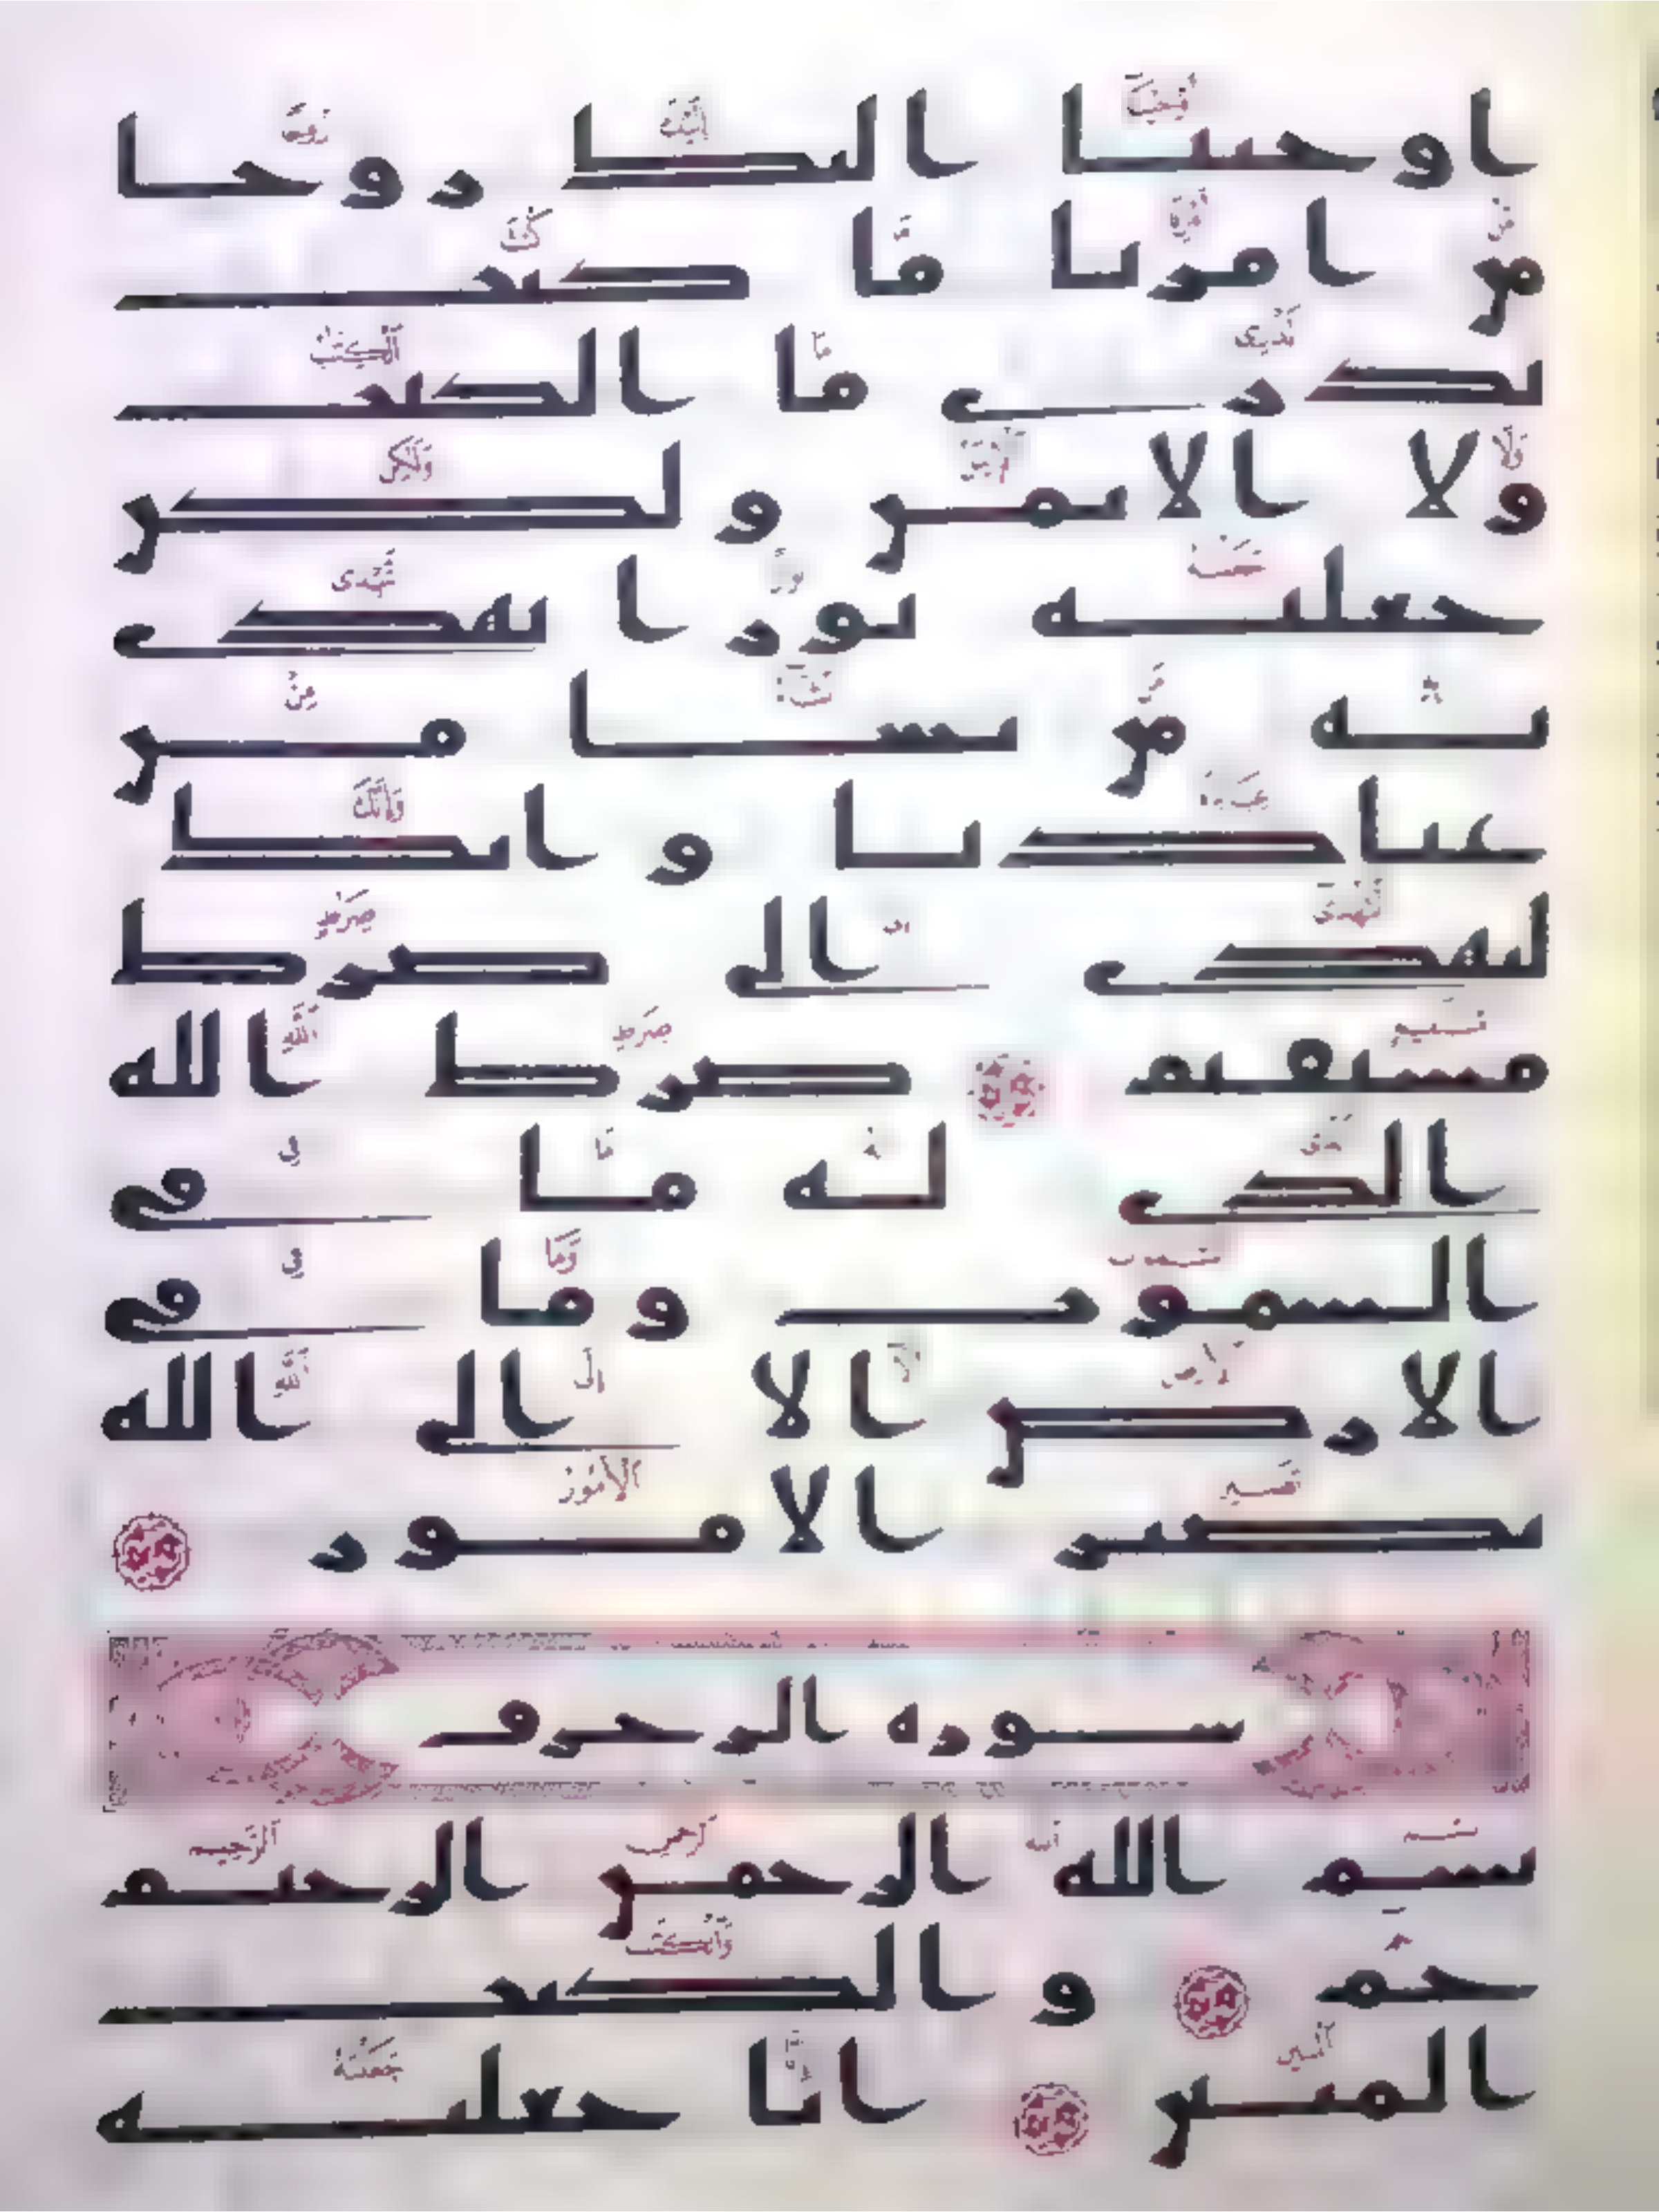 اوحينا اليك روحا
من امرنا ما كنت
تدرى ما الكتب
ولا الايمن ولكن
جعلنه نورا نهدى
به من نشا من
عبادنا وانك
لتهدى الى صرط
مستقيم صرط الله
الذى له ما فى
السموت وما فى
الارض الا الى الله
تصير الامور
سوره الزخرف
بسم الله الرحمن الرحيم
حم والكتب
المبين انا جعلنه